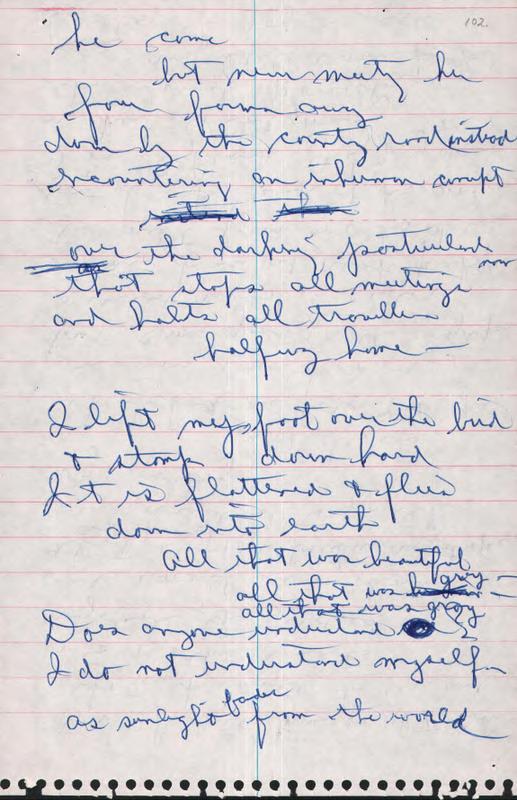 102.
he come
but never meets her
four farms away
down by the county road instead
encountering an inhuman corrupt
over the darking pastureland
that stops all meetings now
and halts all travellers
halfway home —
I lift my foot over the bird
& stomp down hard
It is flattened & flies
down into earth
All that was beautiful
all that was gray —
all that was gray
Does anyone understand ?
I do not understand myself
as sunlight fades from the world